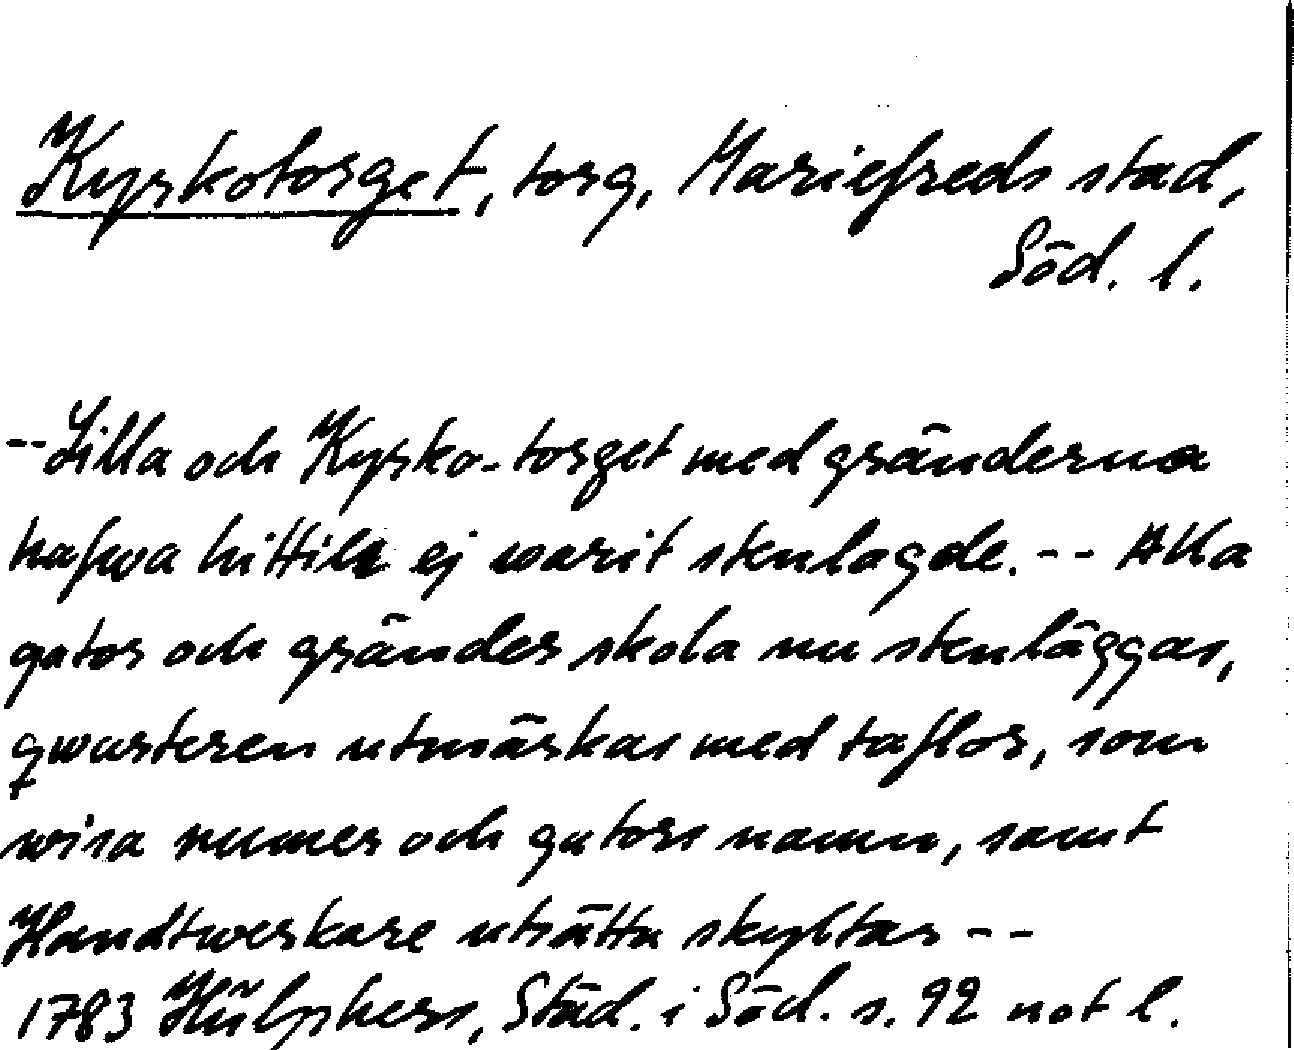 Kyrkotorget, torg, Mariefreds stad,
Söd. l.
-- Lilla och Kyrko-torget med gränderna
hafwa hittils ej warit stenlagde. -- Alla
gator och gränder skola nu stenläggas,
qwarteren utmärkas med taflor, som
wisa numer och gators namn, samt
Handtwerkare utsätta skyltar --
1783 Hülphers, Städ. i Söd. s. 92 not l.